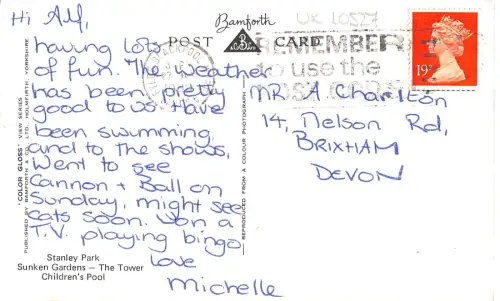 Hi Alf,
having lots
of fun. The weather
has been pretty
good to us. Have
been swimming
and to the shows,
Went to see
Cannon + Ball on
Sunday, might see
cats soon. Won a
T.V. playing bingo,
love
Michelle
Stanley Park
Sunken Gardens — The Tower
Children's Pool
Bamforth
POST CARD
UK 10527
REMEMBER
to use the
POSTCODE
19
MR A Charlton
14, Nelson Rd,
BRIXHAM
DEVON
"COLOR GLOSS" VIEW SERIES
PUBLISHED BY BAMFORTH & CO. LTD. HOLMFIRTH YORKSHIRE
REPRODUCED FROM A COLOUR PHOTOGRAPH